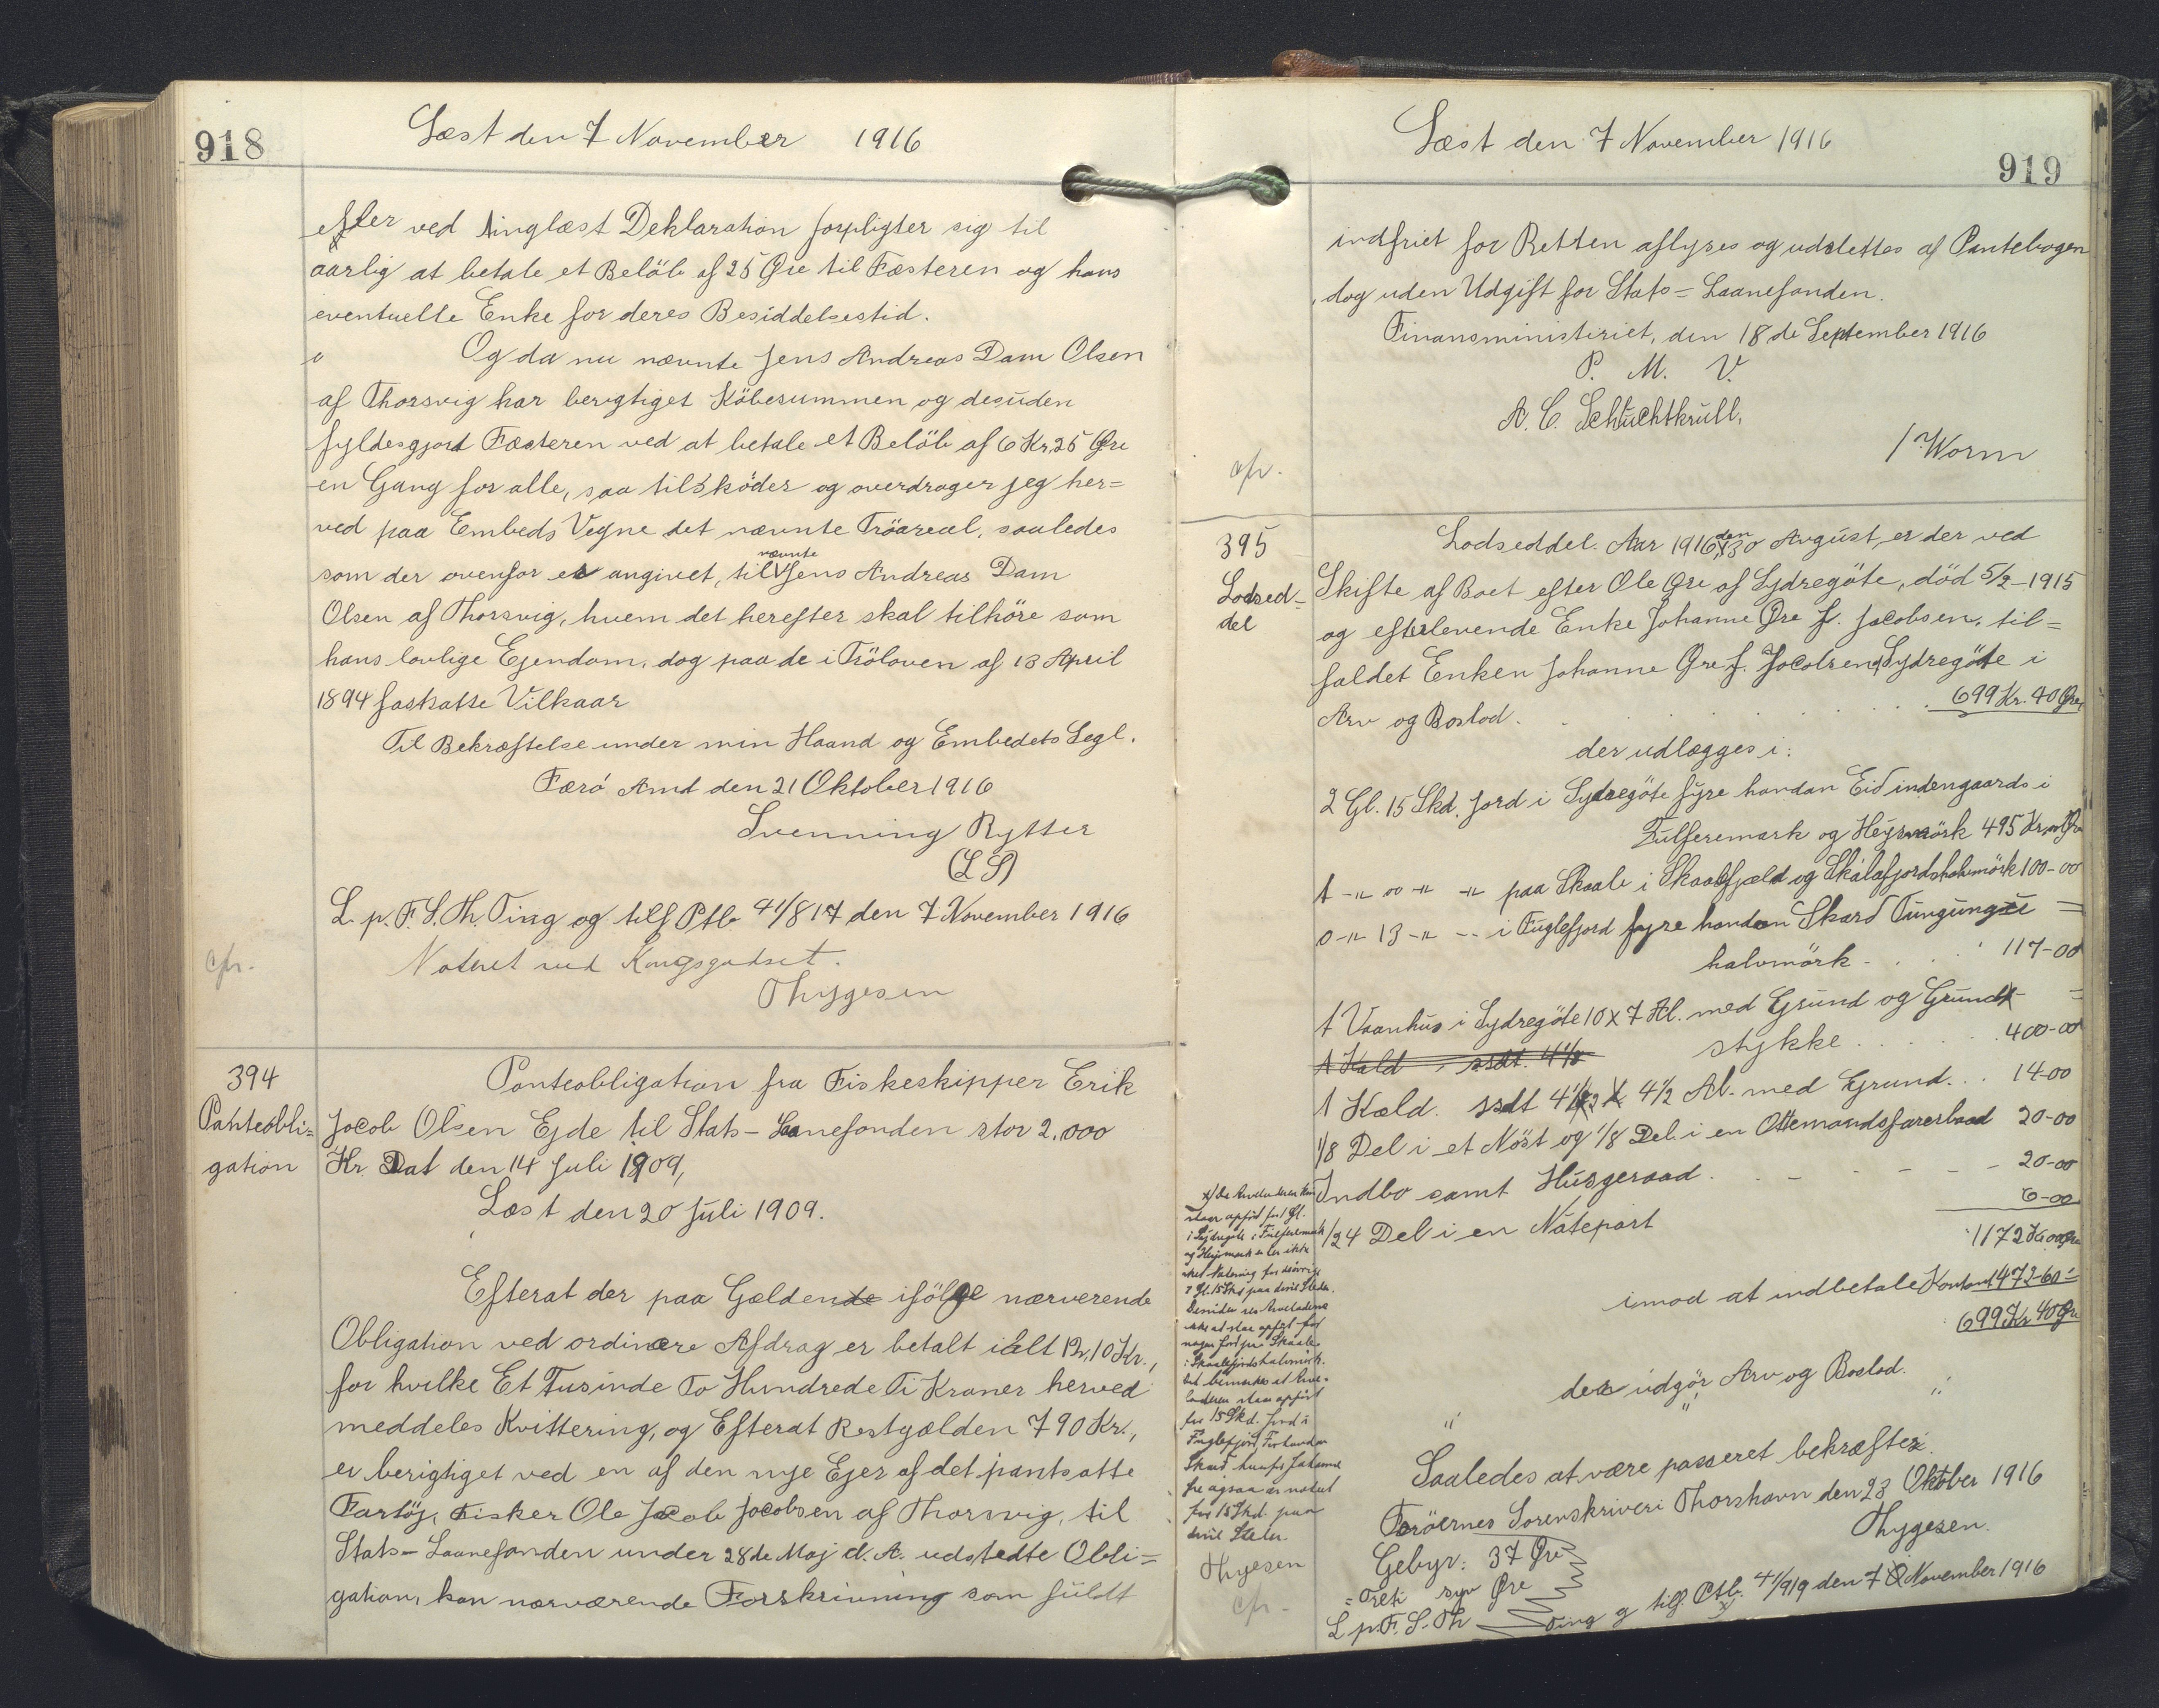 918
Læst den 7 November 1916
efter ved tinglæst Deklaration forpligter sig til
aarlig at betale et Beløb af 25 Øre til Fæsteren og hans
eventuelle Enke for deres Besiddelsestid.
Og da nu nævnte Jens Andreas Dam Olsen
af Thorsvig har berigtiget Købesummen og desuden
fyldesgjort Fæsteren ved at betale et Beløb af 6 Kr. 25 Øre
en Gang for alle, saa tilskøder og overdrager jeg her=
ved paa Embeds Vegne det nævnte Trøareal, saaledes
som der ovenfor er angivet, til nævnte Jens Andreas Dam
Olsen af Thorsvig, hvem det herefter skal tilhøre som
hans lovlige Ejendom, dog paa de i Trøloven af 13 April
1894 fastsatte Vilkaar
Til Bekræftelse under min Haand og Embedets Segl.
Færø Amt den 21 Oktober 1916
Svenning Rytter
(L S)
L. p. F. S. Th. Ting og tilf Ptb 41/817 den 7 November 1916
cfr.
Noteret ved Kongsgodset.
Thygesen
394
Panteobli=
gation
Panteobligation fra Fiskeskipper Erik
Jacob Olsen Ejde til Stats-Laanefonden stor 2.000
Kr. Dat den 14 Juli 1909,
Læst den 20 Juli 1909.
Efterat der paa Gældende ifølge nærværende
Obligation ved ordinære Afdrag er betalt ialt 12,10 Kr.,
for hvilke Et Tusinde To Hundrede Ti Kroner herved
meddeles Kvittering, og Efterat Restgælden 790 Kr.,
er berigtiget ved en af den nye Ejer af det pantsatte
Fartøj, Fisker Ole Jacob Jacobsen af Thorsvig, til
Stats-Laanefonden under 28de Maj d. A. udstedte Obli=
gation, kan nærværende Forskrivning som fuldt
Læst den 7 November 1916
919
indfriet for Retten aflyses og udslettes af Pantebogen
, dog uden Udgift for Stats=Laanefonden.
Finansministeriet, den 18de September 1916
P. M. V.
A. C. Schluchtkrull,
/ Worm
cfr.
395
Lodsed-
del
Lodseddel. Aar 1916, den 30 August, er der ved
Skifte af Boet efter Ole Øre af Sydregöte, død 5/2-1915
og efterlevende Enke Johanne Øre f. Jacobsen, til=
faldet Enken Johanne Øre f. Jacobsen, Sydregöte i
Arv og Boslod. 699 Kr. 40 Øre,
der udlægges i:
2 Gl. 15 Skd. Jord i Sydregöte fyre handan Eid indengaards i
Tulferemark og Heyswörk 495 Kr.
1 -"- 00 -"- -"- paa Skaale i Skaalefjæld og Skálafjordshalvmörk 100-00
0 -"- 13 -"- -- i Fuglefjord fyre handan Skard Tungung =
halvmörk - 117-00
1 Vaanhus i Sydregöte 10 x 7 Al. med Grund og Grund- =
stykke 400-00
1 Kald ssdt. 4 1/2
1 Kæld. ssdt 4 1/2 x 4 1/2 Al. med Grund. 14-00
1/8 Del i et Nöst og 1/8 Del i en Ottemandsfarerbaad 20-00
Indbo samt Husgeraad. 20-00
1/24 Del i en Nátepart 6-00
1172 Kr 00 Øre
imod at indbetale Kontant 472-60
699 Kr 40 Øre
der udgör Arv og Boslod.
" " "
x/ De Arveladeren kun
staar opført for 1 Gl.
i Sydregöte i Tulferemark
og Heysmark er der ikke
sket Notering for de övrige
2 Gl. 15 Skd paa disse Steder.
Desuden ses Arveladeren
ikke at staa opført for
nogen Jord fra Skaale
i Skaalefjordshalvmörk.
Det bemærkes at Arve-
laderen staar opført
for 15 Skd. Jord i
Fuglefjord, For handan
Skard
for 15 Skd. paa
disse Steder.
Thygesen
cfr-
Saaledes at være passeret bekræftes.
Færöernes Sorenskriveri Thorshavn den 23 Oktober 1916
Thygesen.
Gebyr: 37 Øre
= Treti syv Øre
L p. F. S. Th Ting og tilf. Ptb. 41/919 den 7 November 1916